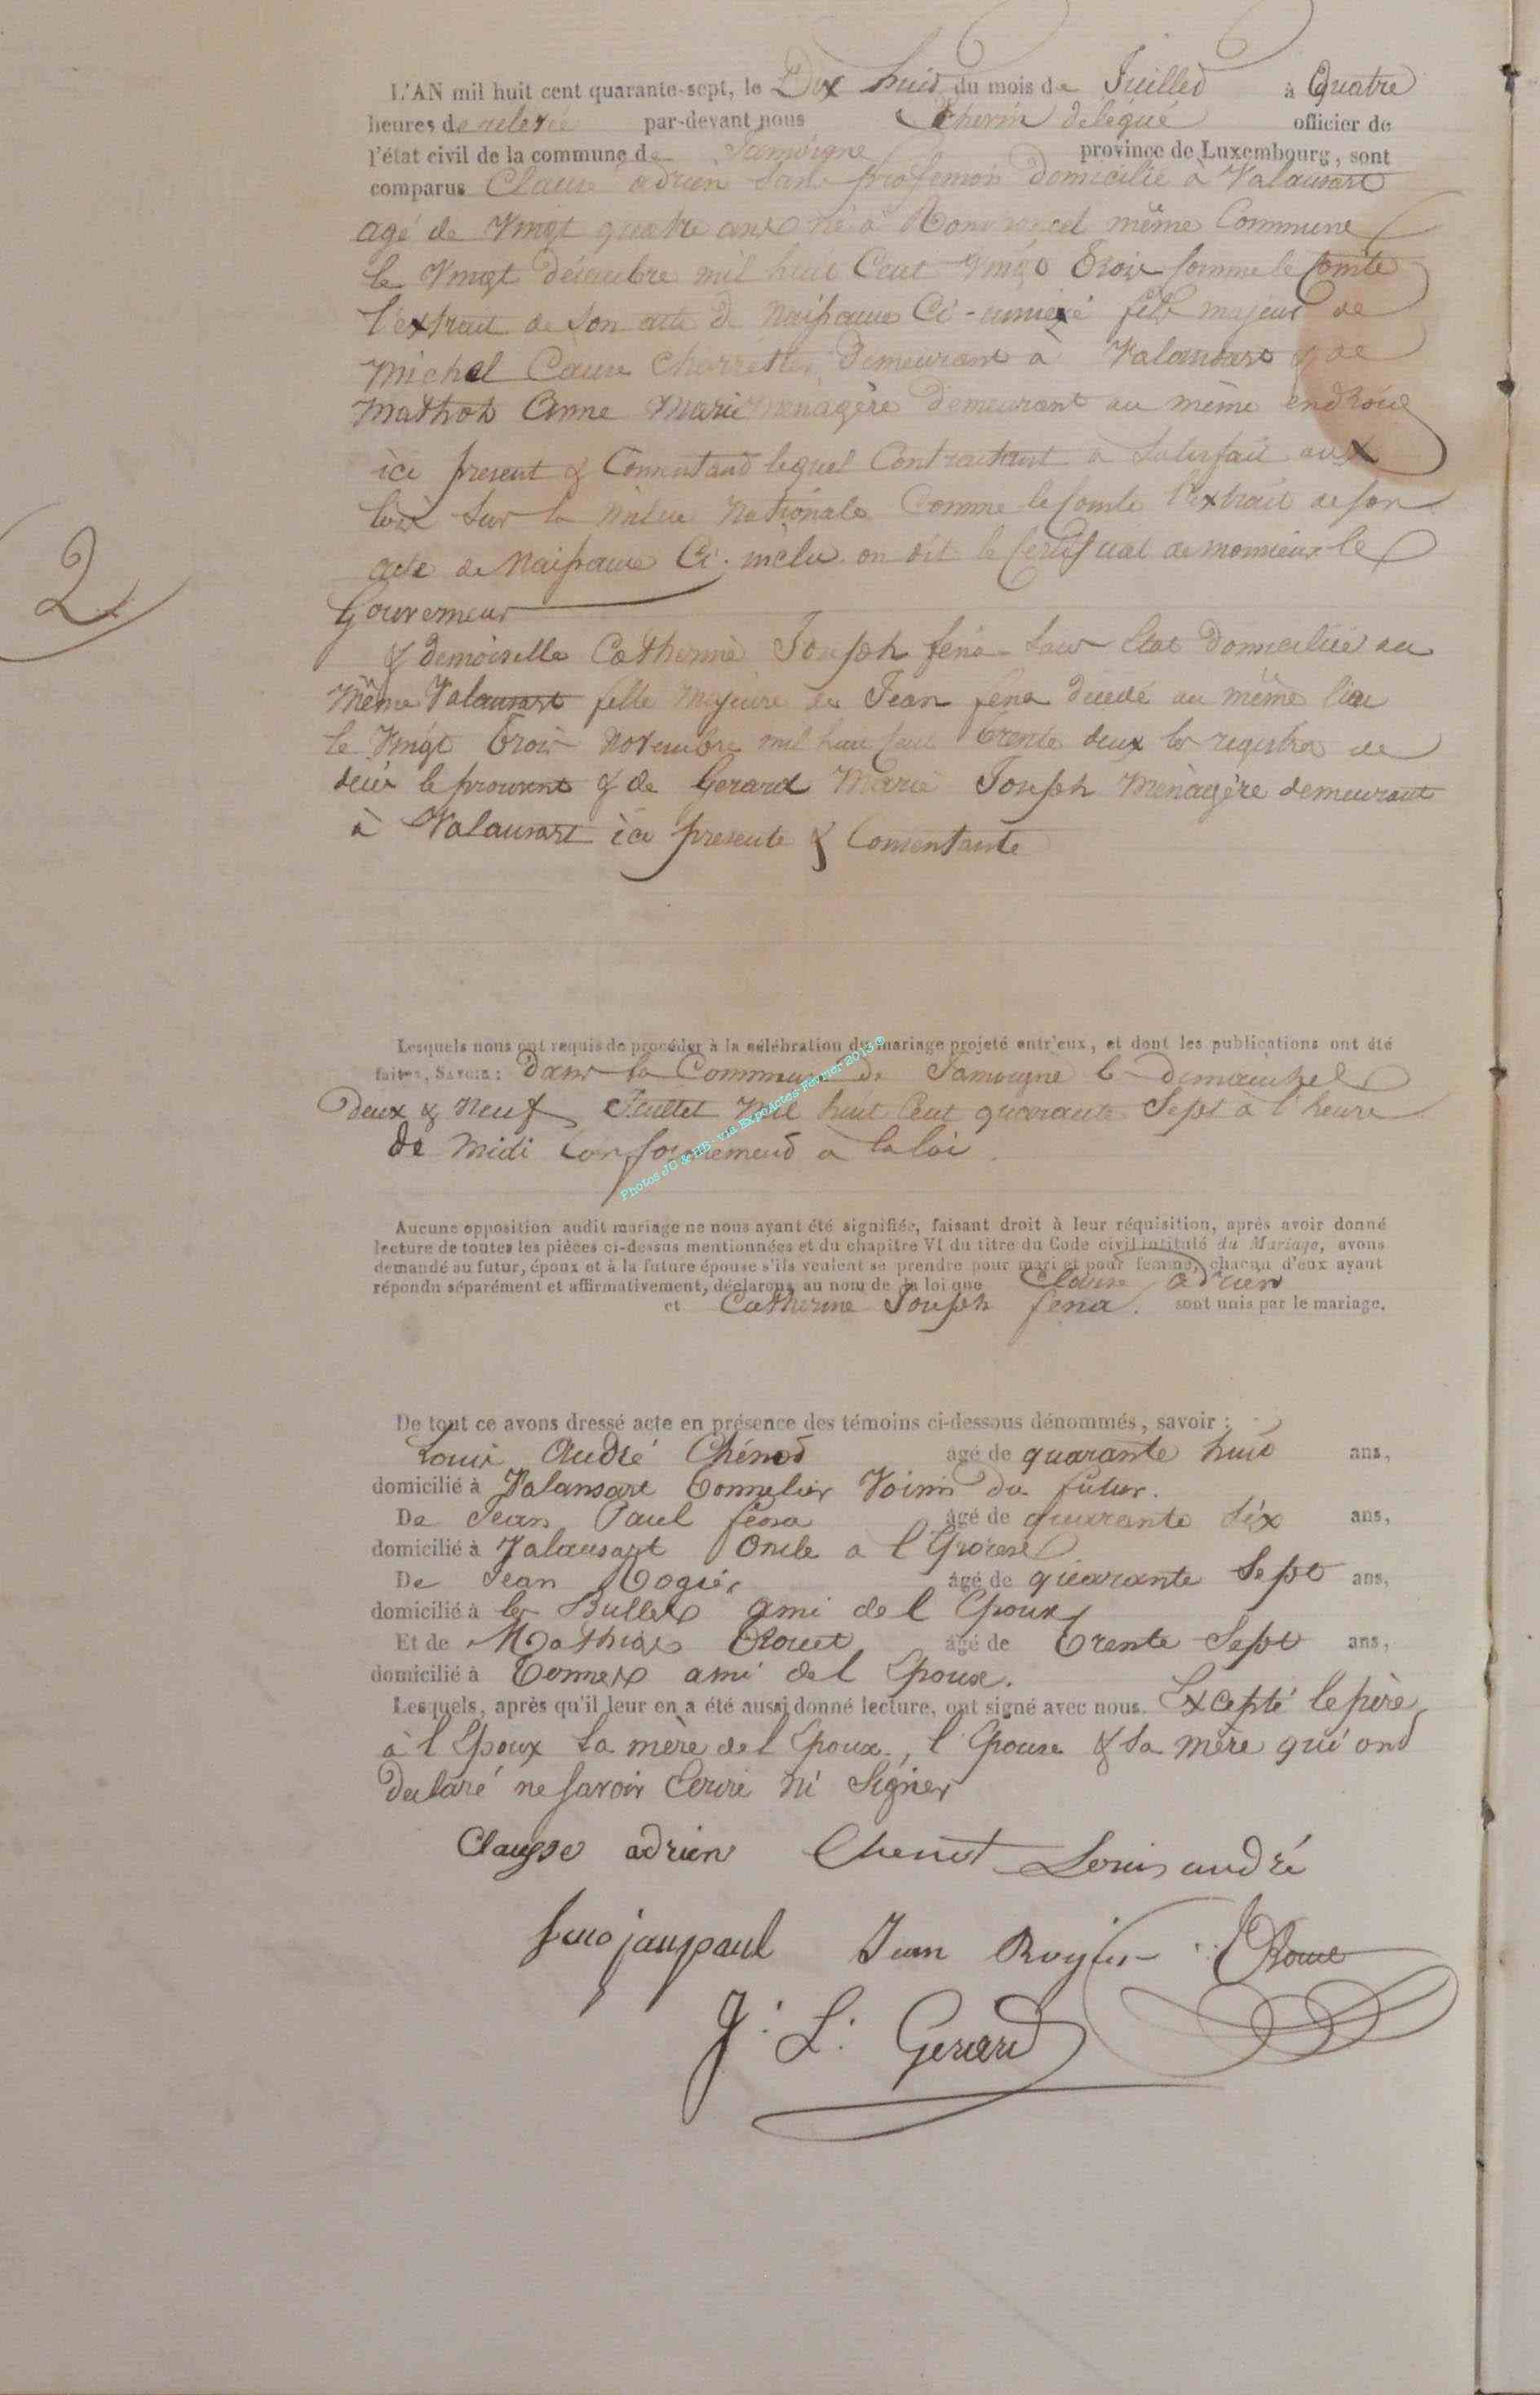 L'AN mil huit cent quarante-sept, le Dix huit du mois de Juillet à Quatre
heures de relevée par-devant nous délégué officier de
l'état civil de la commune de Jamoigne province de Luxembourg, sont
comparus Clause adrien sans profession domicilié à Valansart
agé de Vingt quatre ans né à même Commune
le Vingt décembre mil huit Cent Vingt Trois Comme le Conste
l'extrait de son acte de Naissance Ci-annexé fils majeur de
Michel Cause Charretier demeurant à Valansart & de
Mathot Anne Marie menagère demeurant au même endroit
ici present & Consentand lequel Contractant a Satisfait aux
loix sur la Milice Nationale Comme le Conste l'extrait de son
acte de Naissance Ci-inclu on dit le Certificat de monsieur le
Gouverneur
& demoiselle Catherine Joseph fena Sans Etat Domiciliée au
Même Valansart fille Majeure de Jean fena décédé au même lieu
le Vingt Trois Novembre mil huit Cent Trente deux les registres de
décès le prouvent & de Gerard Marie Joseph Menàgère demeurant
à Valansart ici presente & Consentante
2
Lesquels nous ont requis de procéder à la célébration du mariage projeté entr'eux, et dont les publications ont été
faites, SAVOIR: Dans la Commune de Jamoigne le dimanche
Deux & Neuf Juillet Mil huit Cent quarante Sept à l'heure
de Midi Conformement a la loi.
Photos JC & HB - via ExpoActes-Février 2013 ©
Aucune opposition audit mariage ne nous ayant été signifiée, faisant droit à leur réquisition, après avoir donné
lecture de toutes les pièces ci-dessus mentionnées et du chapitre VI du titre du Code civil intitulé du Mariage, avons
demandé au futur, époux et à la future épouse s'ils veulent se prendre pour mari et pour femme, chacun d'eux ayant
répondu séparément et affirmativement, déclarons au nom de la loi que Clause adrien
et Catherine Joseph fena. sont unis par le mariage.
De tout ce avons dressé acte en présence des témoins ci-dessous dénommés, savoir:
Louis André Chénot agé de quarante huit ans,
domicilié à Valansart Tonnelier Voisin du futur.
De Jean Paul fena âgé de quarante six ans,
domicilié à Valansart Oncle a l Epouse
De Jean Rogier âgé de quarante Sept ans,
domicilié à les Bulles ami de l Epoux
Et de Mathias agé de Trente Sept ans,
domicilié à ami de l Epoux.
Lesquels, après qu'il leur en a été aussi donné lecture, ont signé avec nous. Excepté le père
à l Epoux la mère de l Epoux, l Epouse & sa mère qui ont
declaré ne savoir Ecrire ni Signer
Clausse adrien Chenot Louis andré
feno janpaul Jean Rogier
J. L. Gerard